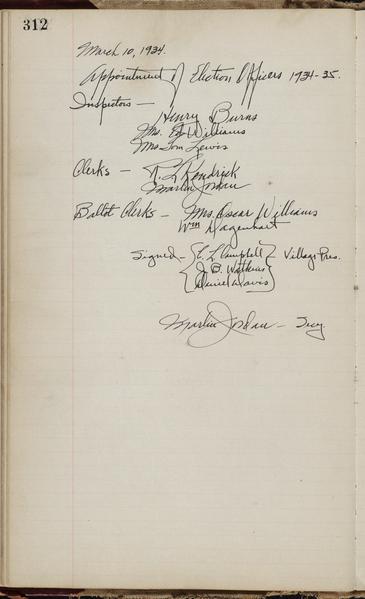 312
March 10, 1934.
Appointment of Election Officers 1934-35.
Inspectors —
Henry Burns
Mrs. Ed Williams
Mrs Tom Lewis
Clerks — R. L. Kendrick
Martin Jordan
Ballot Clerks — Mrs. Oscar Williams
Wm Dagenhart
Signed — C. L. Campbell — Village Pres.
J. B. Watkins
Daniel Davis
Martin Jordan — Secy.